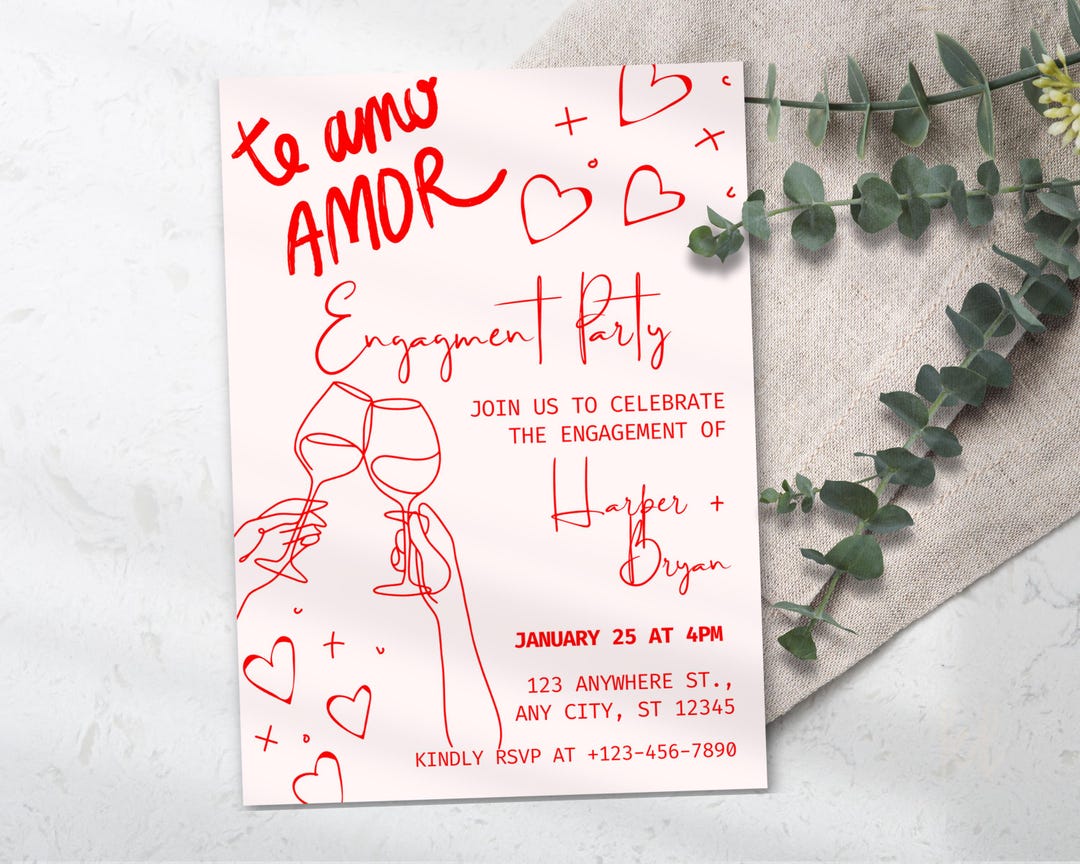 te amo
AMOR
Engagment Party
JOIN US TO CELEBRATE
THE ENGAGEMENT OF
Harper +
Bryan
JANUARY 25 AT 4PM
123 ANYWHERE ST.,
ANY CITY, ST 12345
KINDLY RSVP AT +123-456-7890